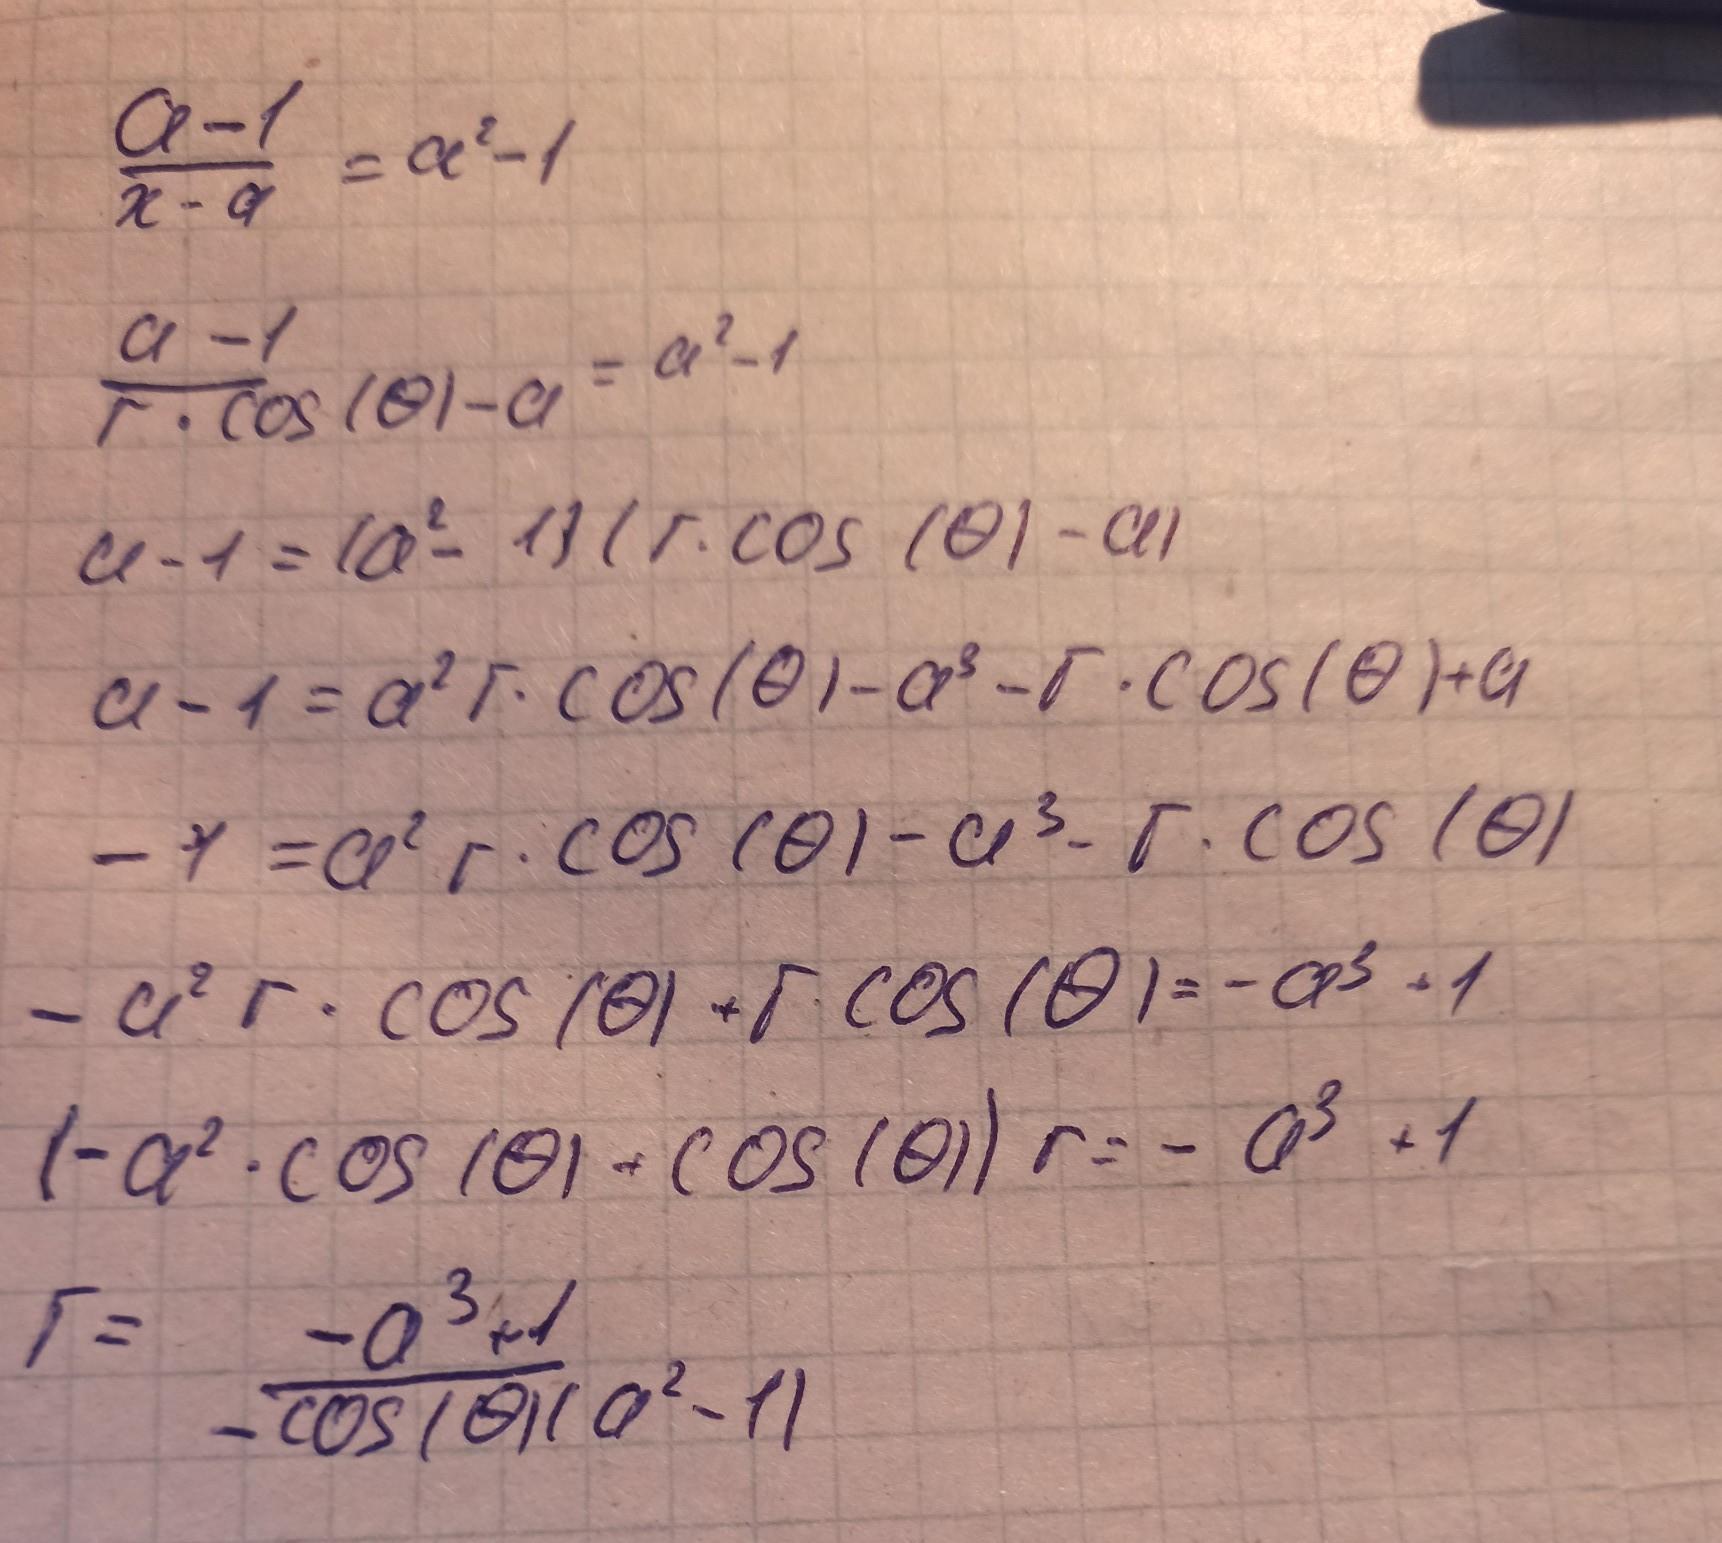 (a-1)/(x-a) = a²-1
(a-1)/(r·cos(θ)-a) = a²-1
a-1=(a²-1)(r·cos(θ)-a)
a-1=a²r·cos(θ)-a³-r·cos(θ)+a
-1=a²r·cos(θ)-a³-r·cos(θ)
-a²r·cos(θ)+r·cos(θ)=-a³+1
(-a²·cos(θ)+cos(θ))r=-a³+1
r=(-a³+1)/(-cos(θ)(a²-1))